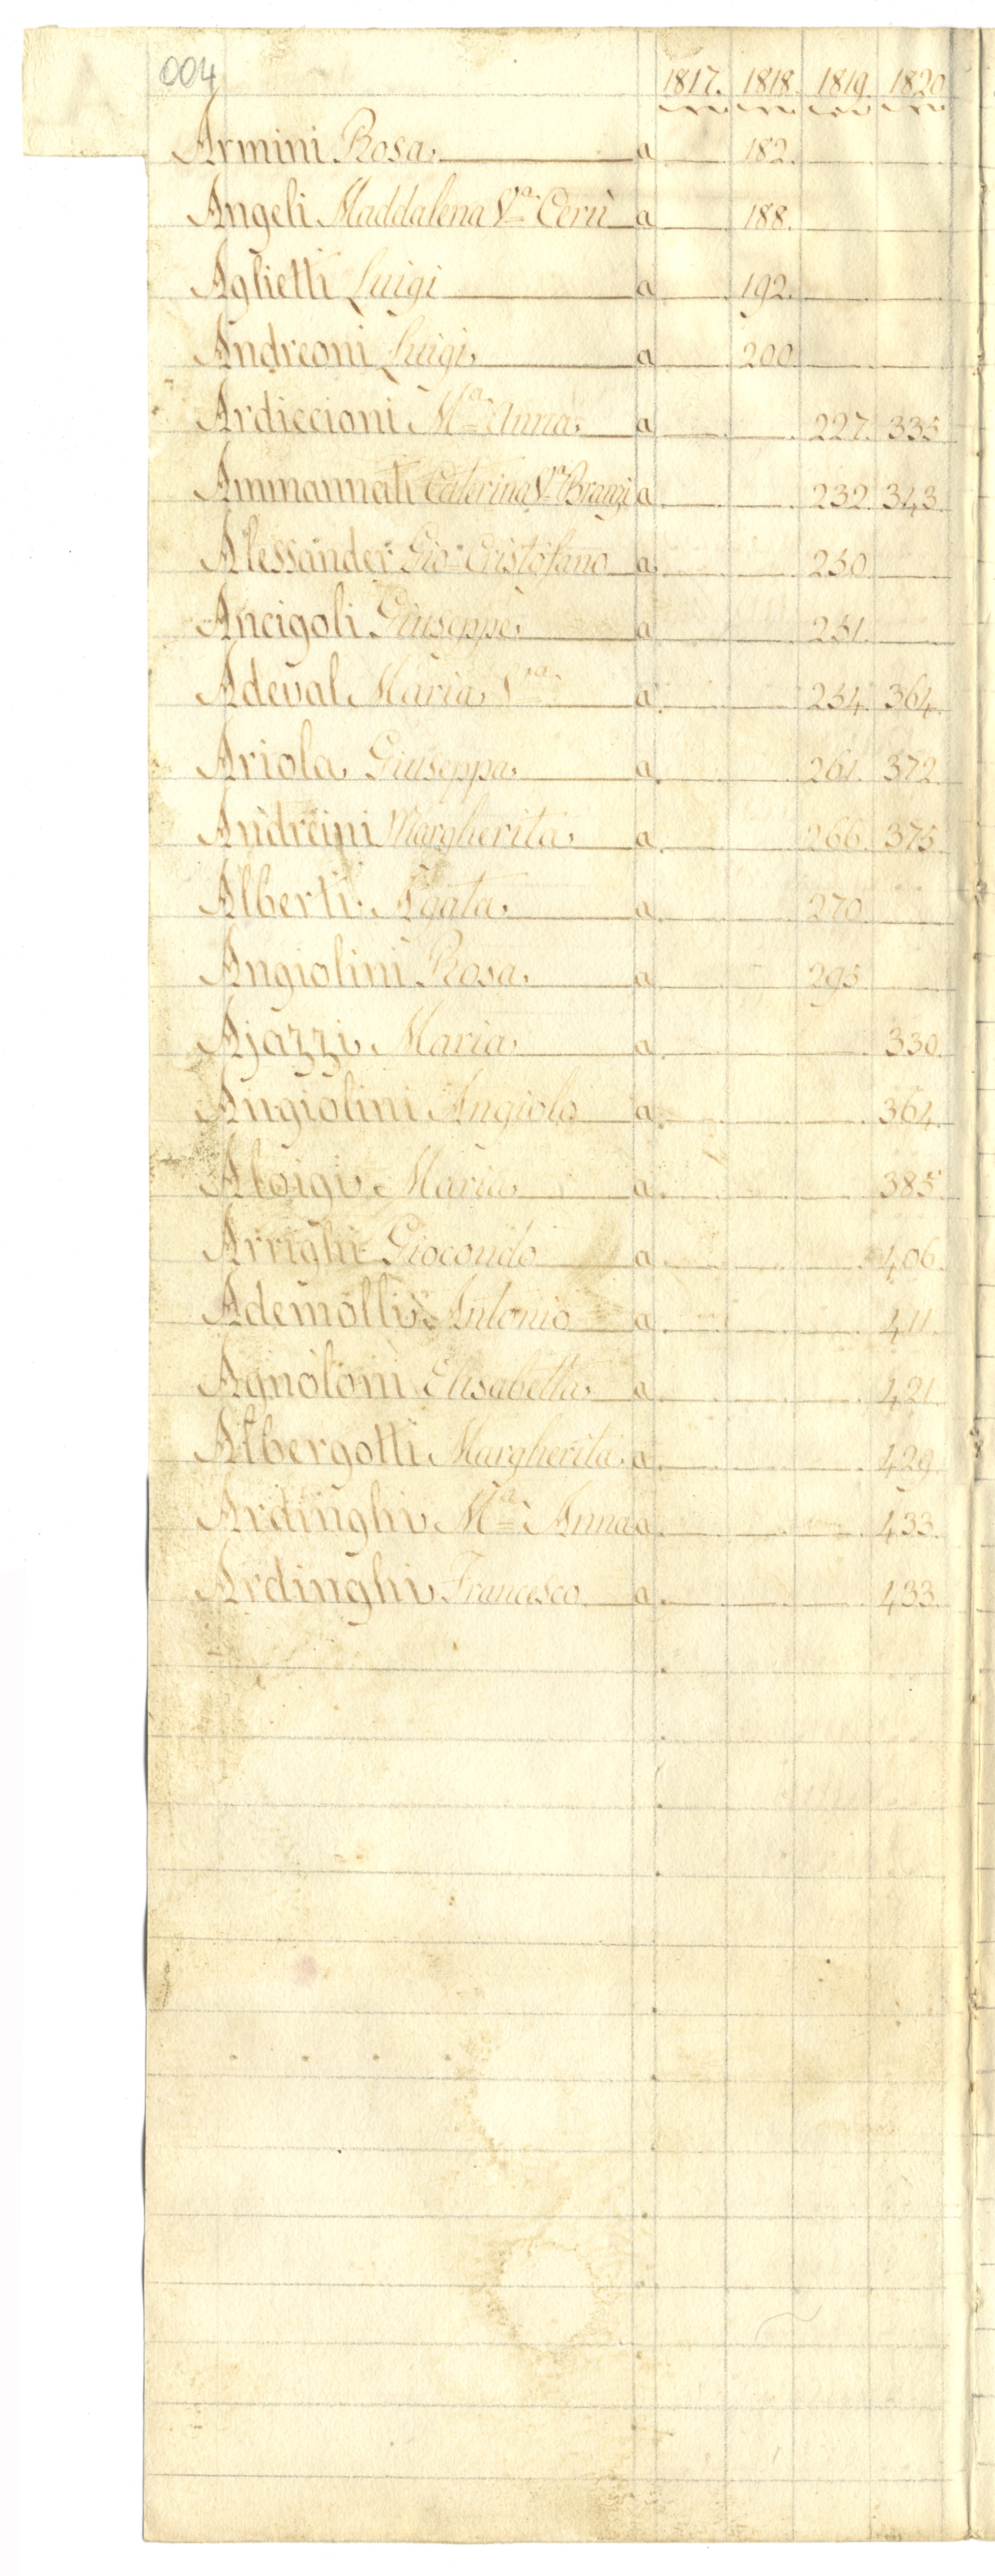 004
1817. 1818. 1819. 1820
Armini Rosa a 182.
Angeli Maddalena Vᵃ Cerù a 188.
Aglietti Luigi a 192.
Andreoni Luigi a 200.
Ardiccioni Mᵃ Anna a 227. 335
Ammannati Caterina Vᵃ Branzi a 232. 343.
Alessander Gio: Cristofano a 250
Ancigoli Giuseppe a 251.
Adeval Maria Vᵃ a 254. 364.
Ariola Giuseppa a 261. 372.
Andreini Margherita a 266. 375.
Alberti Agata a 270.
Angiolini Rosa a 295
Ajazzi Maria a 330.
Angiolini Angiolo a 364.
Aloigi Maria a 385
Arrighi Giocondo a 406.
Ademolli Antonio a 411.
Agnoloni Elisabetta a 421.
Albergotti Margherita a 429
Ardinghi Mᵃ Anna a 433.
Ardinghi Francesco a 433.